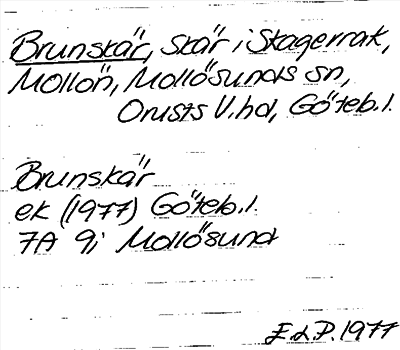 Brunskär, Skär i Skagerrak,
Mollön, Mollösunds sn,
Orusts V.hd, Göteb.l.
Brunskär
ek (1977) Göteb.l.
7A 9i Mollösund
E.L.P. 1977